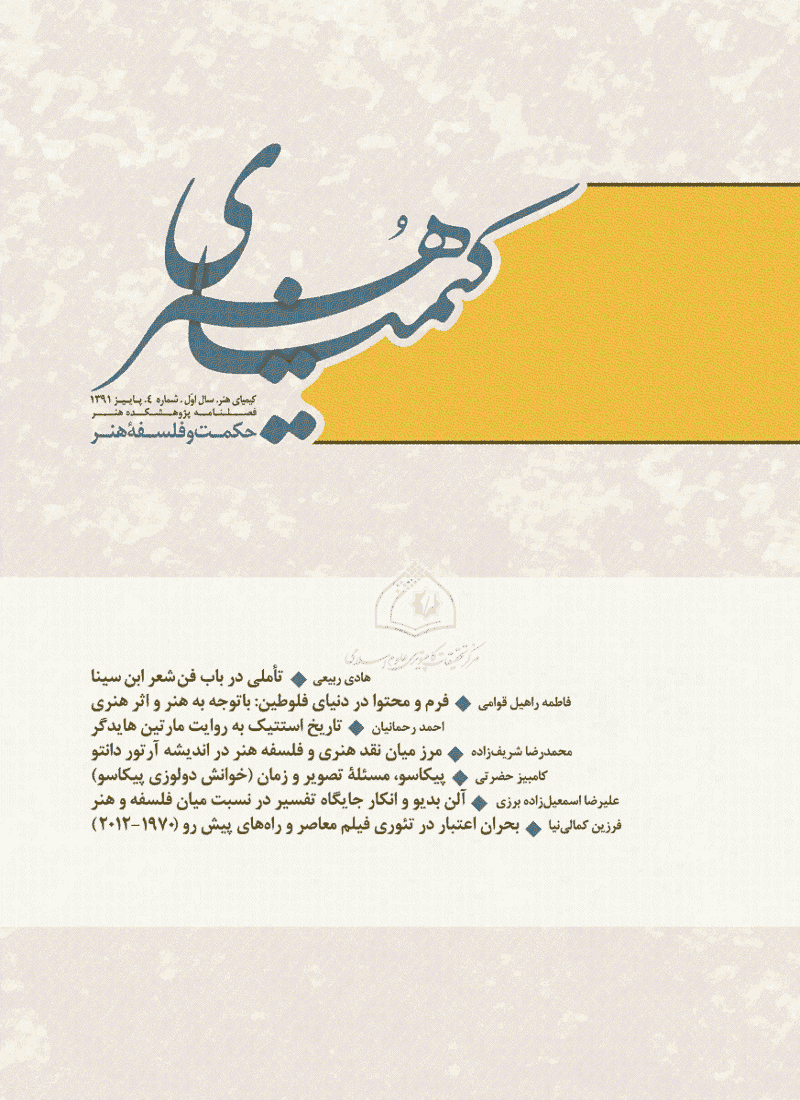 کیمیای هنر
کیمیای هنر. سال اوّل. شماره ٤. پـایـیـز ۱۳۹۱
فصـلـنـامـه پژوهـشـکـده هنـر
حکمـت و فلسـفهٔ هنـر
مرکز تحقیقات کامپیوتری علوم اسلامی
هادی ربیعی ◆ تأملی در باب فن شعر ابن سینا
فاطمه راهیل قوامی ◆ فرم و محتوا در دنیای فلوطین: باتوجه به هنر و اثر هنری
احمد رحمانیان ◆ تاریخ استتیک به روایت مارتین هایدگر
محمدرضا شریف‌زاده ◆ مرز میان نقد هنری و فلسفه هنر در اندیشه آرتور دانتو
کامبیز حضرتی ◆ پیکاسو، مسئلهٔ تصویر و زمان (خوانش دولوزی پیکاسو)
علیرضا اسمعیل‌زاده برزی ◆ آلن بدیو و انکار جایگاه تفسیر در نسبت میان فلسفه و هنر
فرزین کمالی‌نیا ◆ بحران اعتبار در تئوری فیلم معاصر و راه‌های پیش رو (۱۹۷۰-۲۰۱۲)